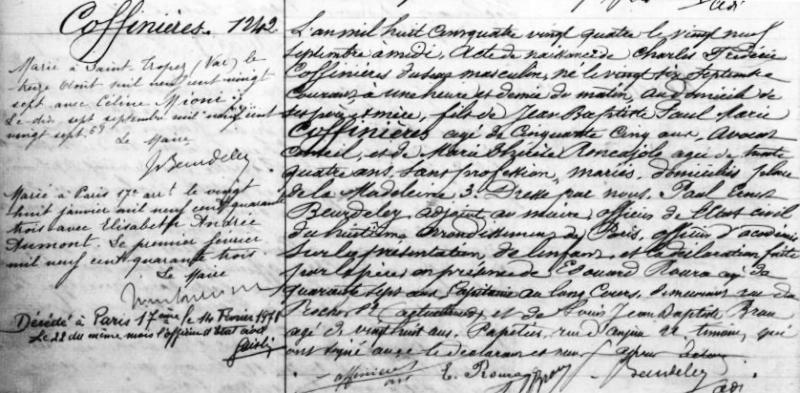 Coffinières. 1242
Marié à Saint Tropez (Var) le
treize Août mil neuf cent vingt
sept avec Céline Mioni
Le dix sept septembre mil neuf cent
vingt sept
Le Maire
Beurdeley
Marié à Paris 17e arrt le vingt
huit janvier mil neuf cent quarante
trois avec Elisabeth Andrée
Aumont. Le premier février
mil neuf cent quarante trois
Le Maire
Décédé à Paris 17ème le 14 Février 1978
Le 22 du même mois l'officier d'Etat civil
L'an mil huit cent quatre vingt quatre le vingt neuf
septembre à midi, Acte de naissance de Charles Frédéric
Coffinières du sexe masculin, né le vingt six septembre
courant, à une heure et demie du matin, au domicile de
ses père et mère, fils de Jean Baptiste Paul Marie
Coffinières agé de Cinquante Cinq ans, Avocat
Conseil, et de Marie Roncajolo agée de trente
quatre ans, sans profession, mariés, domiciliés place
de la Madeleine 3. Dressé par nous, Paul Ernest
Beurdeley, adjoint au maire, officier de l'Etat civil
du huitième arrondissement de Paris, officier d'académie
Sur la présentation de l'enfant et la déclaration faite
par le père en présence de Edouard Roura agé de
quarante sept ans, Capitaine au long Cours, demeurant rue du
Rocher et de Louis Jean Baptiste Brau
agé de vingt huit ans, Papetier, rue d'anjou témoins, qui
ont signé avec le déclarant et nous après lecture
Coffinières E. Roura Beurdeley
adj